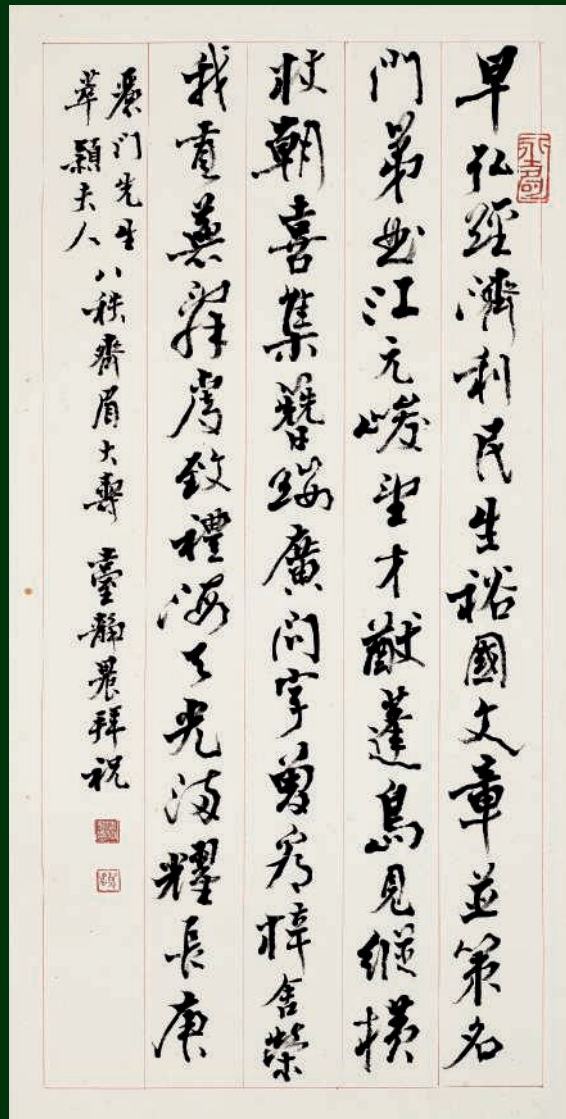 早弘經濟利民生裕國文章並策名
門第曲江元峻望才猷蓬島見縱橫
杖朝喜集簪纓廣問字曾看梓舍榮
我貢蕪辭虔致禮海天光滿耀長庚
麗门先生
萃穎夫人
八秩齊眉大壽 臺靜農拜祝